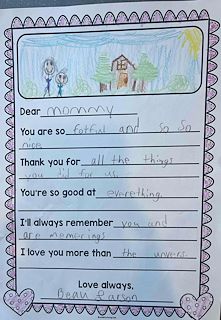 Dear mommy
You are so fotful and so So
nice
Thank you for all the things
you did for us.
You're so good at everething.
I'll always remember you and
are memerings
I love you more than the unvers.
Love always,
Beau Carson